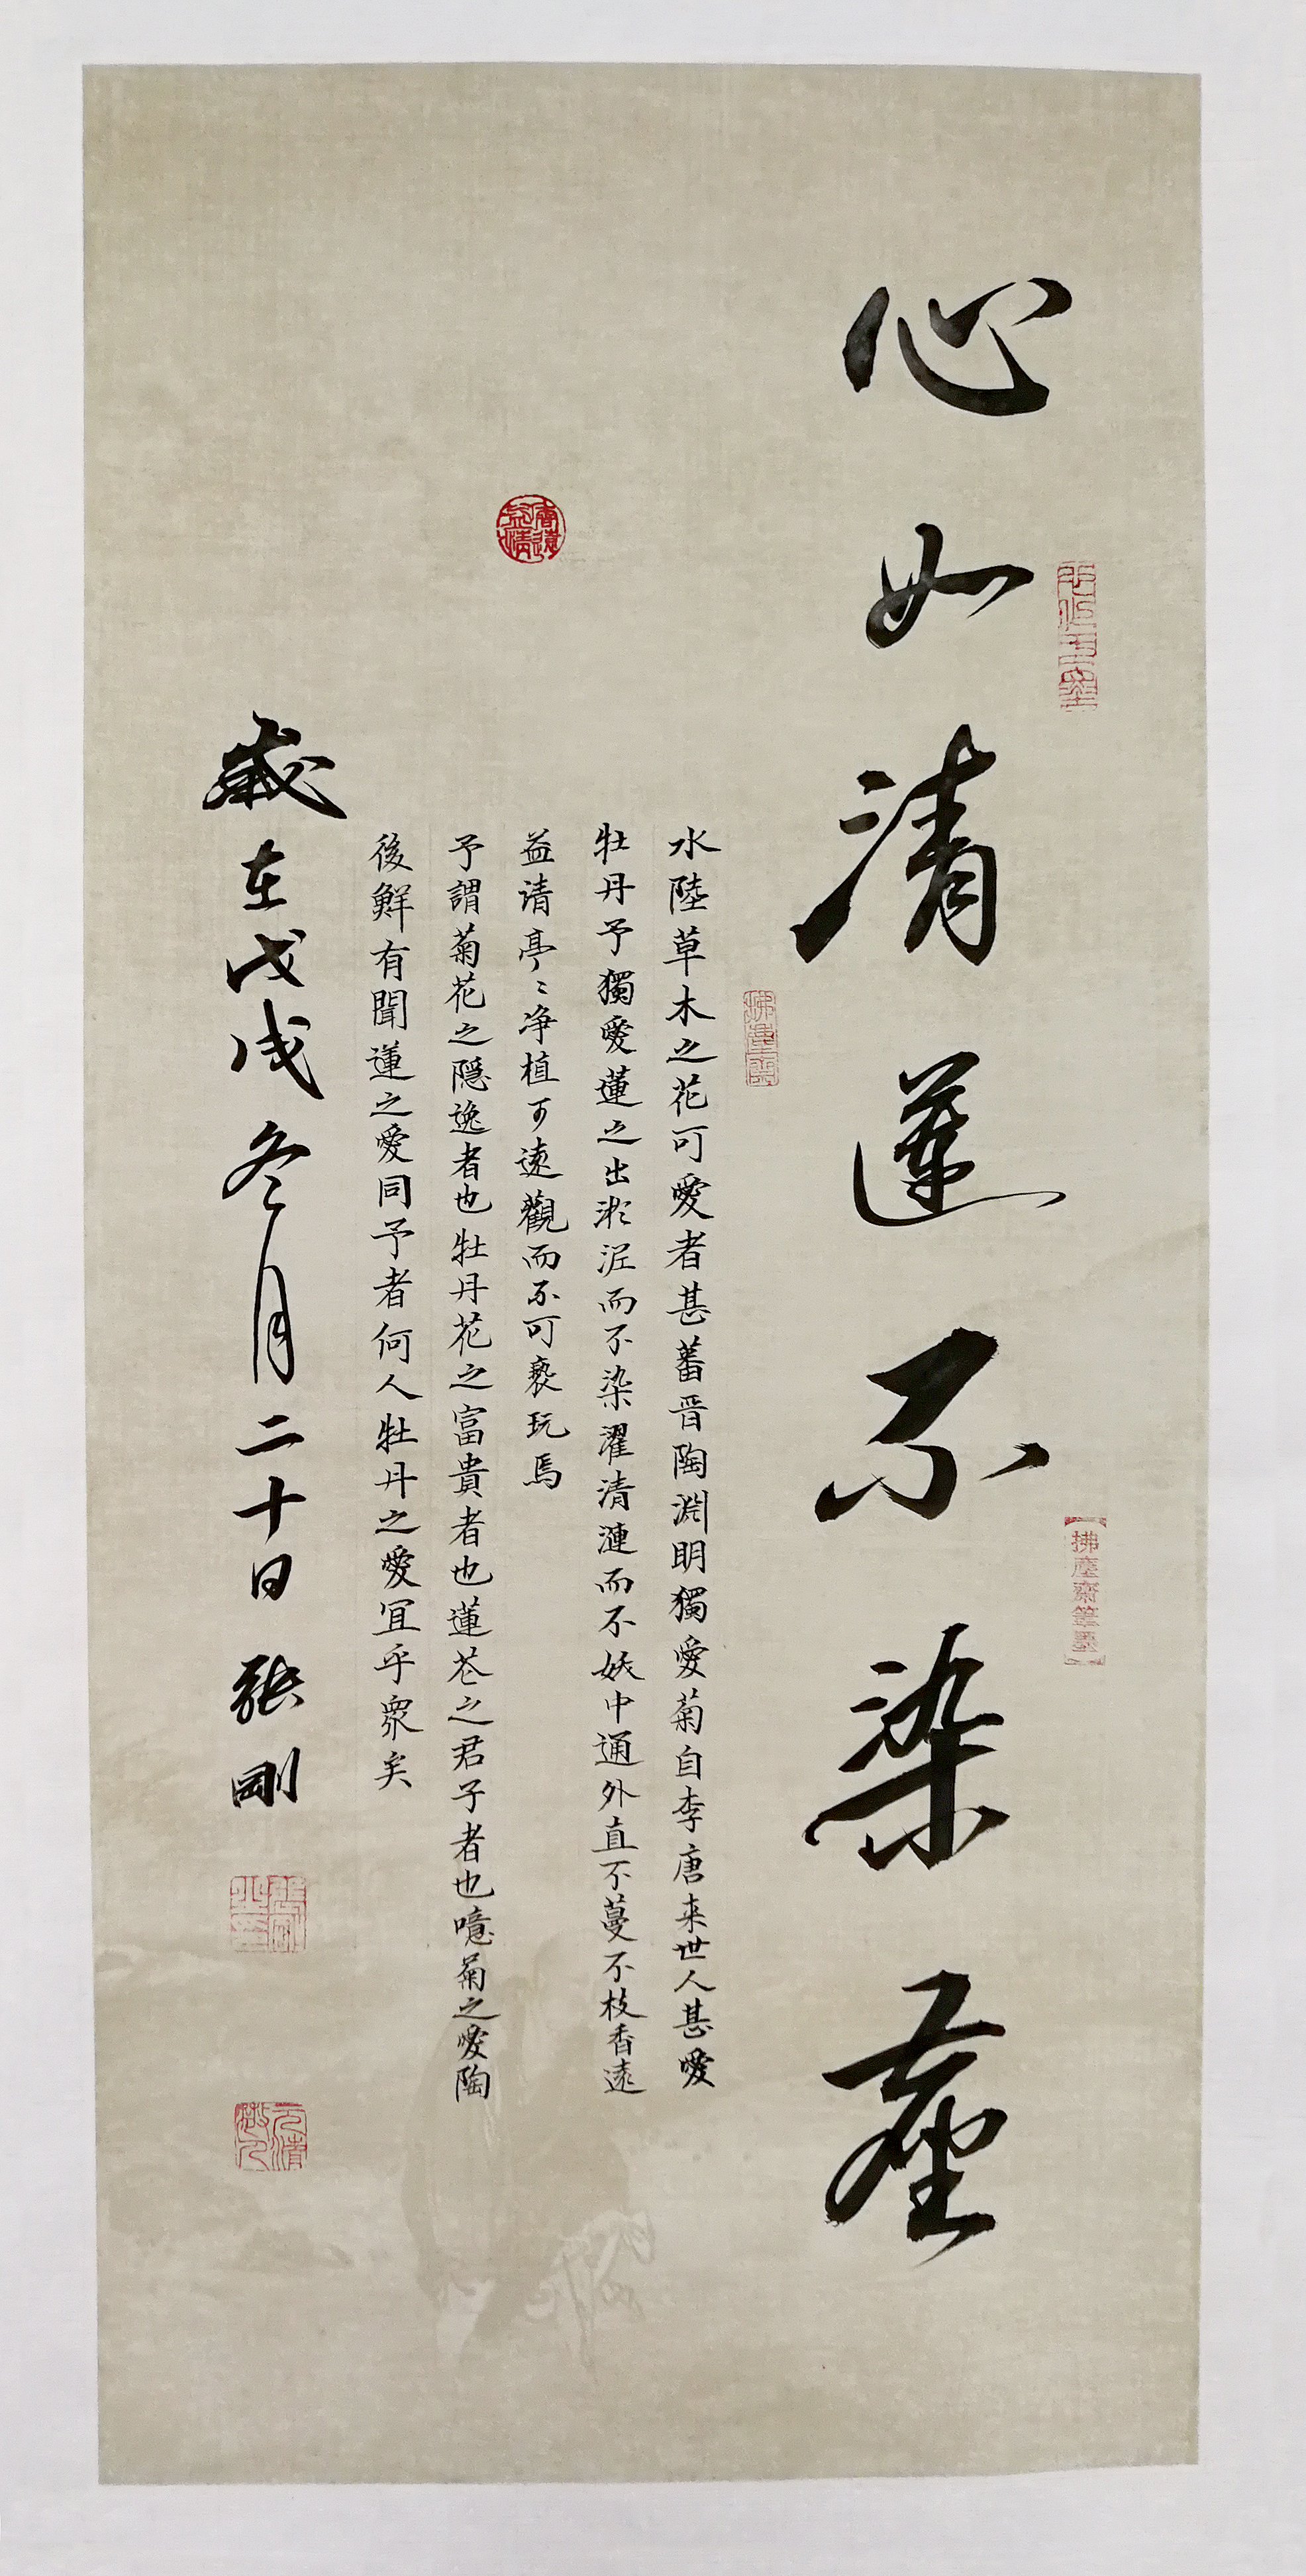 心如清蓮不染塵
拂塵齋筆墨
拂塵齋
水陸草木之花可愛者甚蕃晋陶淵明獨愛菊自李唐来世人甚愛
牡丹予獨愛蓮之出淤泥而不染濯清漣而不妖中通外直不蔓不枝香遠
香遠益清
益请亭〻净植可遠觀而不可褻玩焉
予謂菊花之隠逸者也牡丹花之富貴者也蓮花之君子者也噫菊之愛陶
後鮮有聞蓮之愛同予者何人牡丹之愛宜乎眾矣
歲在戊戌冬月二十日 張剛